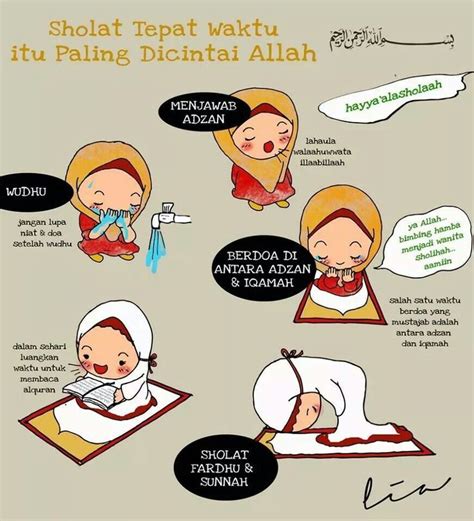 Sholat Tepat Waktu
itu Paling Dicintai Allah
بسم الله الرحمن الرحيم
MENJAWAB
ADZAN
hayya'alasholaah
lahaula
walaahuwwata
illaabillaah
WUDHU
jangan lupa
niat & doa
setelah wudhu
BERDOA DI
ANTARA ADZAN
& IQAMAH
ya Allah...
bimbing hamba
menjadi wanita
sholihah...
aamiin
salah satu waktu
berdoa yang
mustajab adalah
antara adzan
dan iqamah
dalam sehari
luangkan
waktu untuk
membaca
alquran
SHOLAT
FARDHU &
SUNNAH